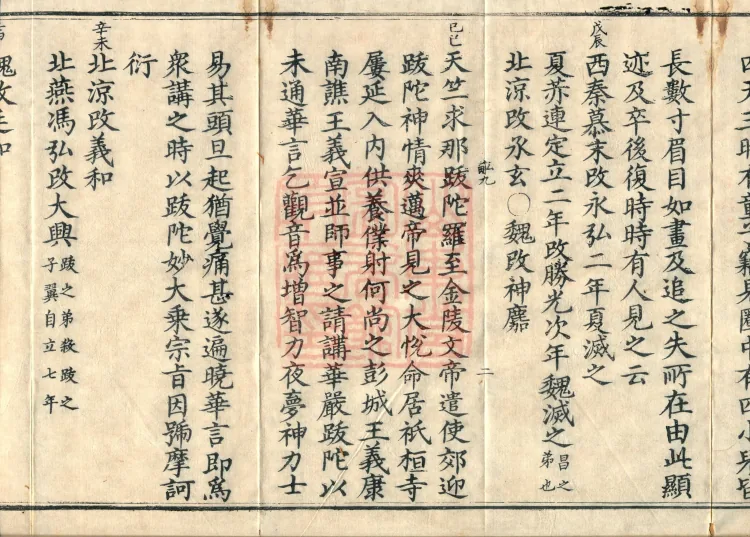 長數寸眉目如畫及追之失所在由此顯
迹及卒後復時時有人見之云
戊辰
西秦慕末改永弘二年夏滅之
夏赫連定立二年改勝光次年魏滅之昌之弟也
北涼改承玄○魏改神䴥
二
己巳
天竺求那跋陀羅至金陵文帝遣使郊迎
跋陀神情爽邁帝見之大悅命居祇桓寺
屢延入內供養僕射何尚之彭城王義康
南譙王義宣並師事之請講華嚴跋陀以
未通華言乞觀音為增智力夜夢神力士
易其頭旦起猶覺痛甚遂遍曉華言即為
衆講之時以跋陀妙大乘宗旨因號摩訶
衍
辛未
北涼改義和
北燕馮弘改大興跋之弟殺跋之子翼自立七年